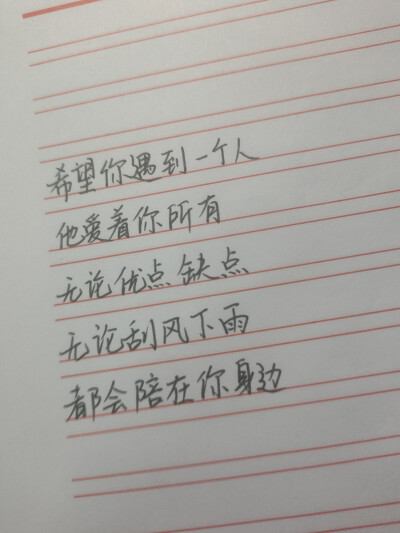 希望你遇到一个人
他爱着你所有
无论优点缺点
无论刮风下雨
都会陪在你身边